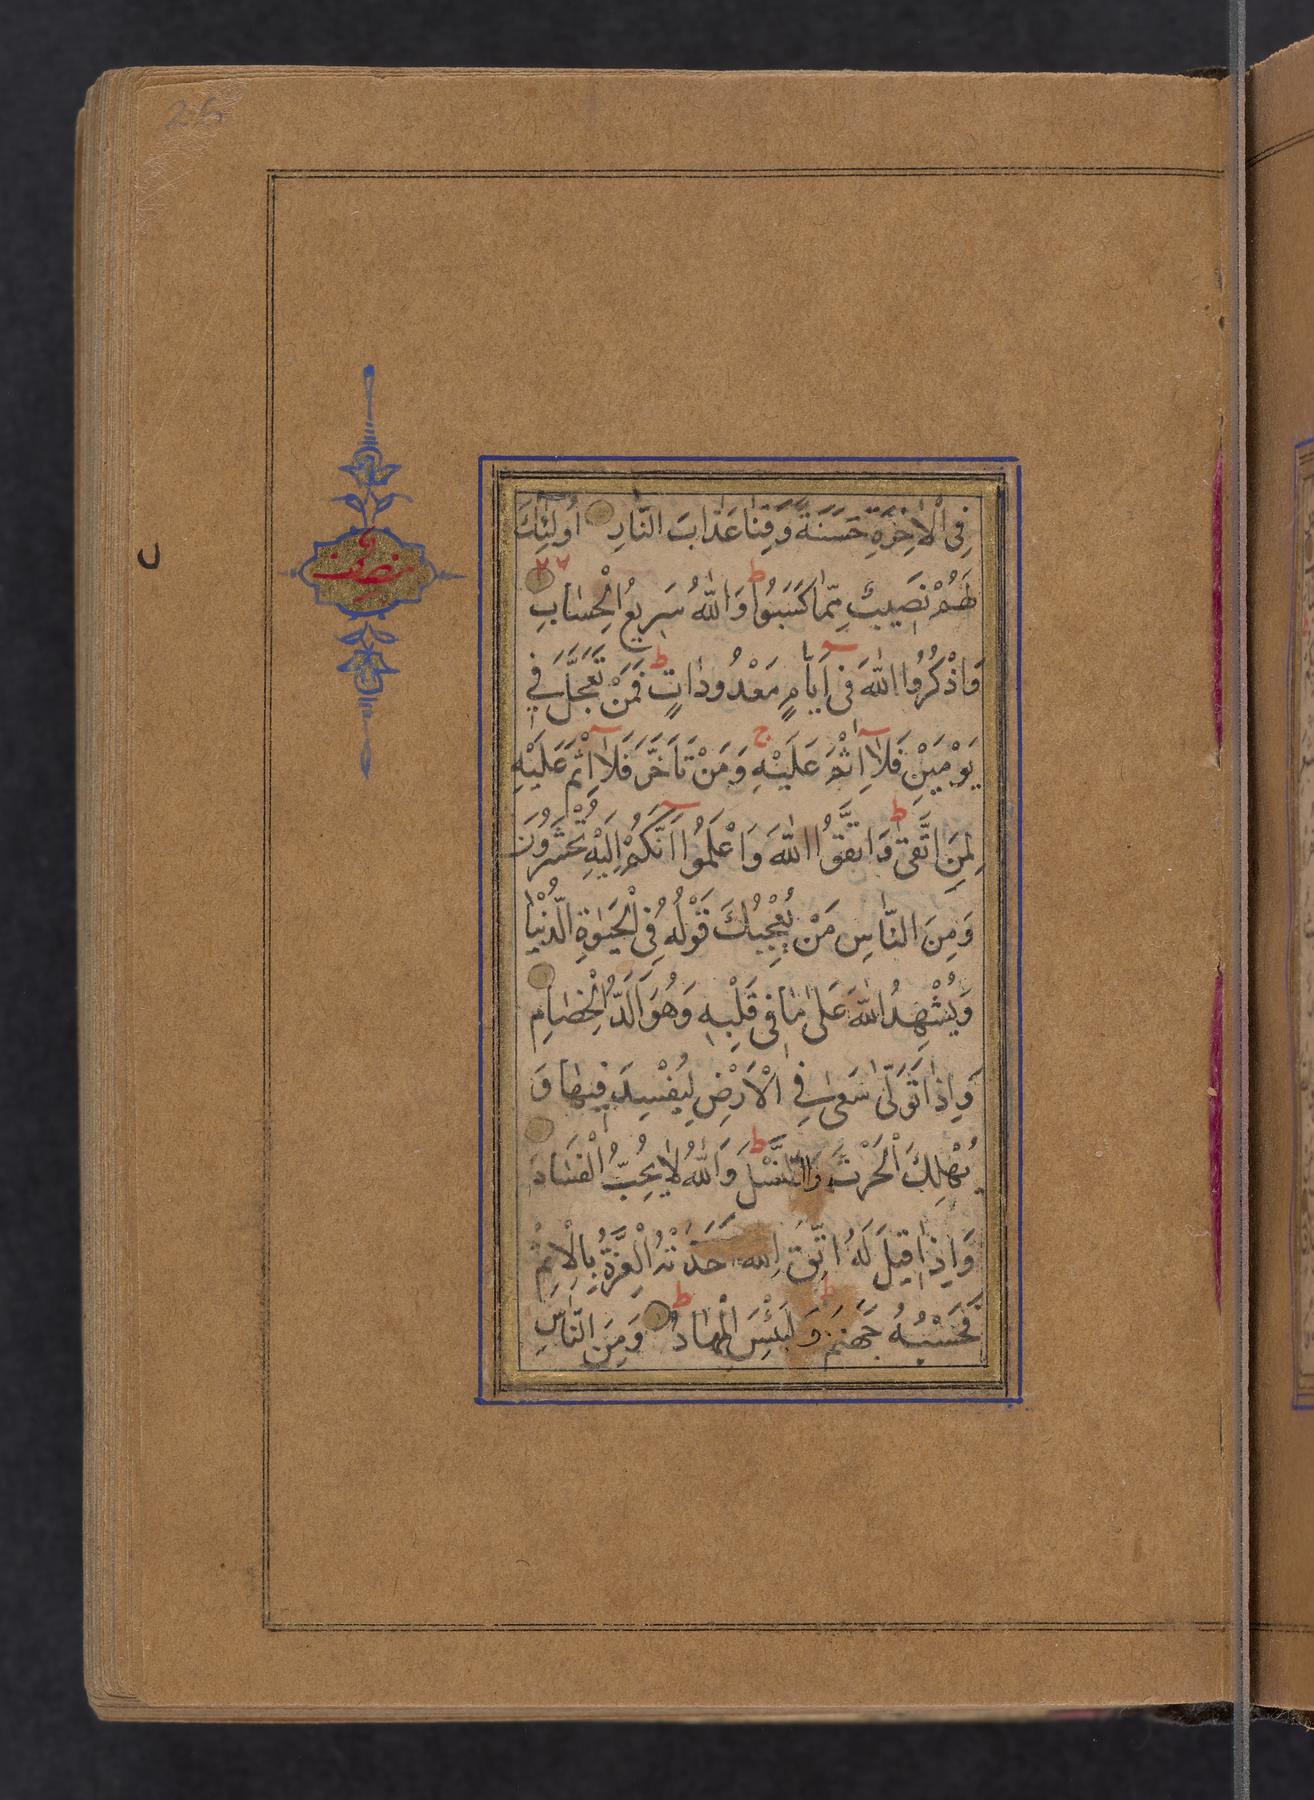 فِى الْاٰخِرَةِ حَسَنَةً وَقِنَا عَذَابَ النَّارِ اُولٰٓئِكَ
لَهُمْ نَصِيبٌ مِمَّا كَسَبُوا ط وَاللّٰهُ سَرِيعُ الْحِسَابِ
وَاذْكُرُوا اللّٰهَ فِى اَيَّامٍ مَعْدُودَاتٍ ط فَمَنْ تَعَجَّلَ فِى
يَوْمَيْنِ فَلَا اِثْمَ عَلَيْهِ ج وَمَنْ تَاَخَّرَ فَلَا اِثْمَ عَلَيْهِ
لِمَنِ اتَّقٰى ط وَاتَّقُوا اللّٰهَ وَاعْلَمُوا اَنَّكُمْ اِلَيْهِ تُحْشَرُونَ
وَمِنَ النَّاسِ مَنْ يُعْجِبُكَ قَوْلُهُ فِى الْحَيٰوةِ الدُّنْيَا
وَيُشْهِدُ اللّٰهَ عَلٰى مَا فِى قَلْبِهِ وَهُوَ اَلَدُّ الْخِصَامِ
وَاِذَا تَوَلّٰى سَعٰى فِى الْاَرْضِ لِيُفْسِدَ فِيهَا وَ
يُهْلِكَ الْحَرْثَ وَالنَّسْلَ ط وَاللّٰهُ لَا يُحِبُّ الْفَسَادَ
وَاِذَا قِيلَ لَهُ اتَّقِ اللّٰهَ اَخَذَتْهُ الْعِزَّةُ بِالْاِثْمِ
فَحَسْبُهُ جَهَنَّمُ ط وَلَبِئْسَ الْمِهَادُ ط وَمِنَ النَّاسِ